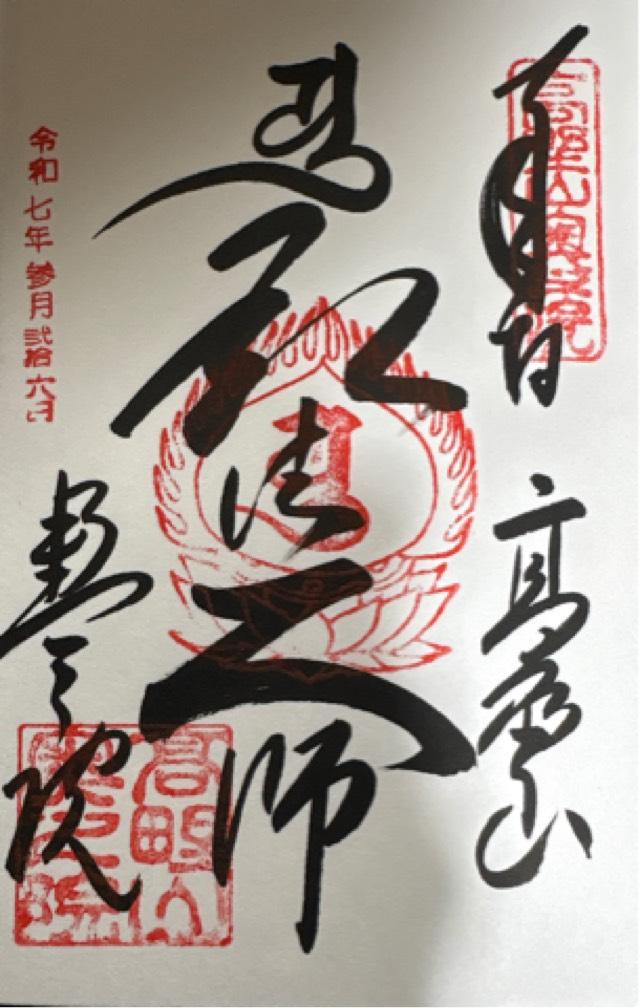 奉拝 高野山
弘法大師
奥之院
令和七年参月弐拾六日
高野山
奥之院